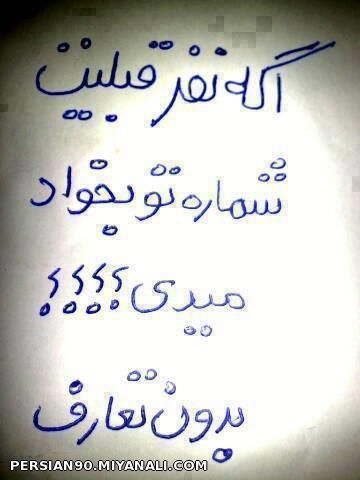 اگه نفر قبلیت
شماره تو بخواد
میدی؟؟؟؟
بدون تعارف
PERSIAN90.MIYANALI.COM